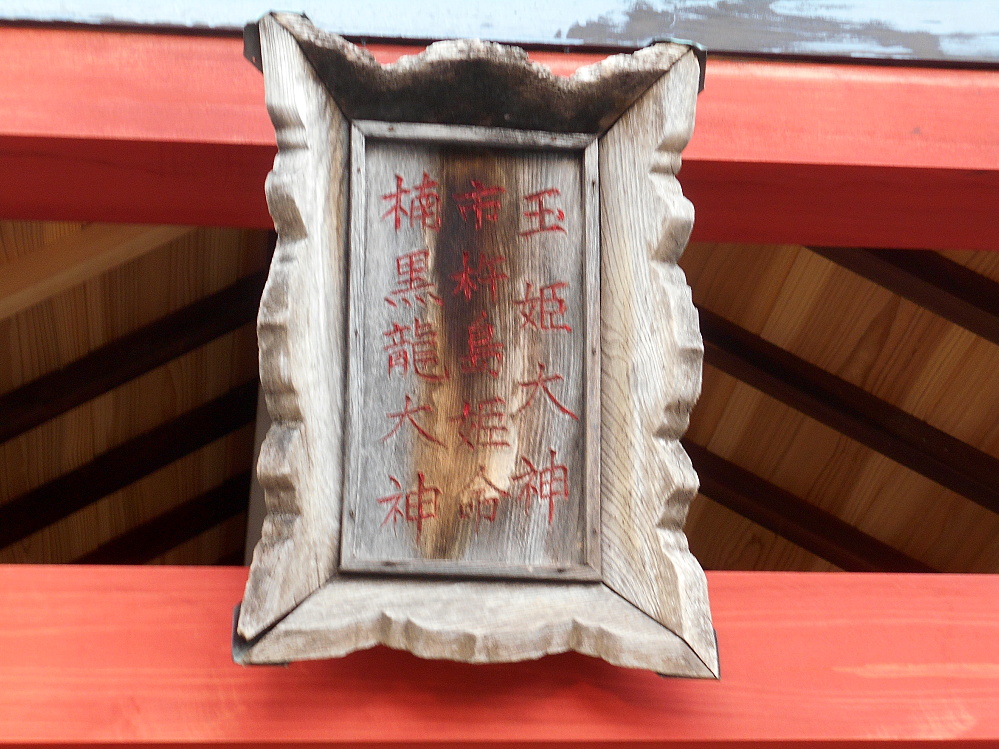 玉姫大神
市杵島姫命
楠黒龍大神